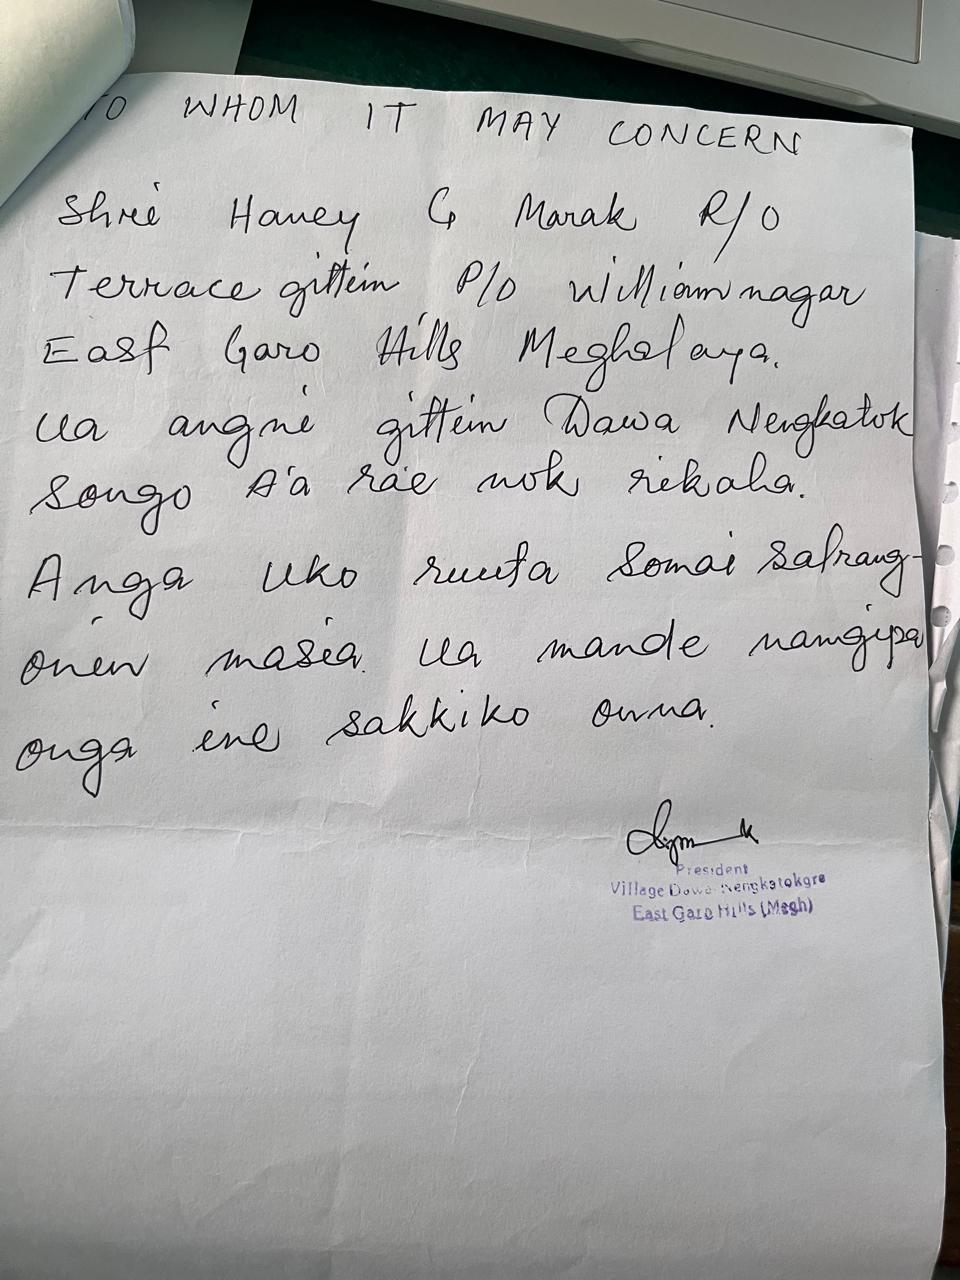 TO WHOM IT MAY CONCERN
Shri Haney G Marak R/O
Terrace gittim P/O williamnagar
East Garo Hills Meghalaya.
Ua angni gittim Dawa Nengkatok
songo A'a rae nok rikaha.
Anga uko ruuta somai salrang-
onin masia. Ua mande namgipa
onga ine sakkiko onna.
President
Village Dawa Nengkatokgre
East Garo Hills (Megh)